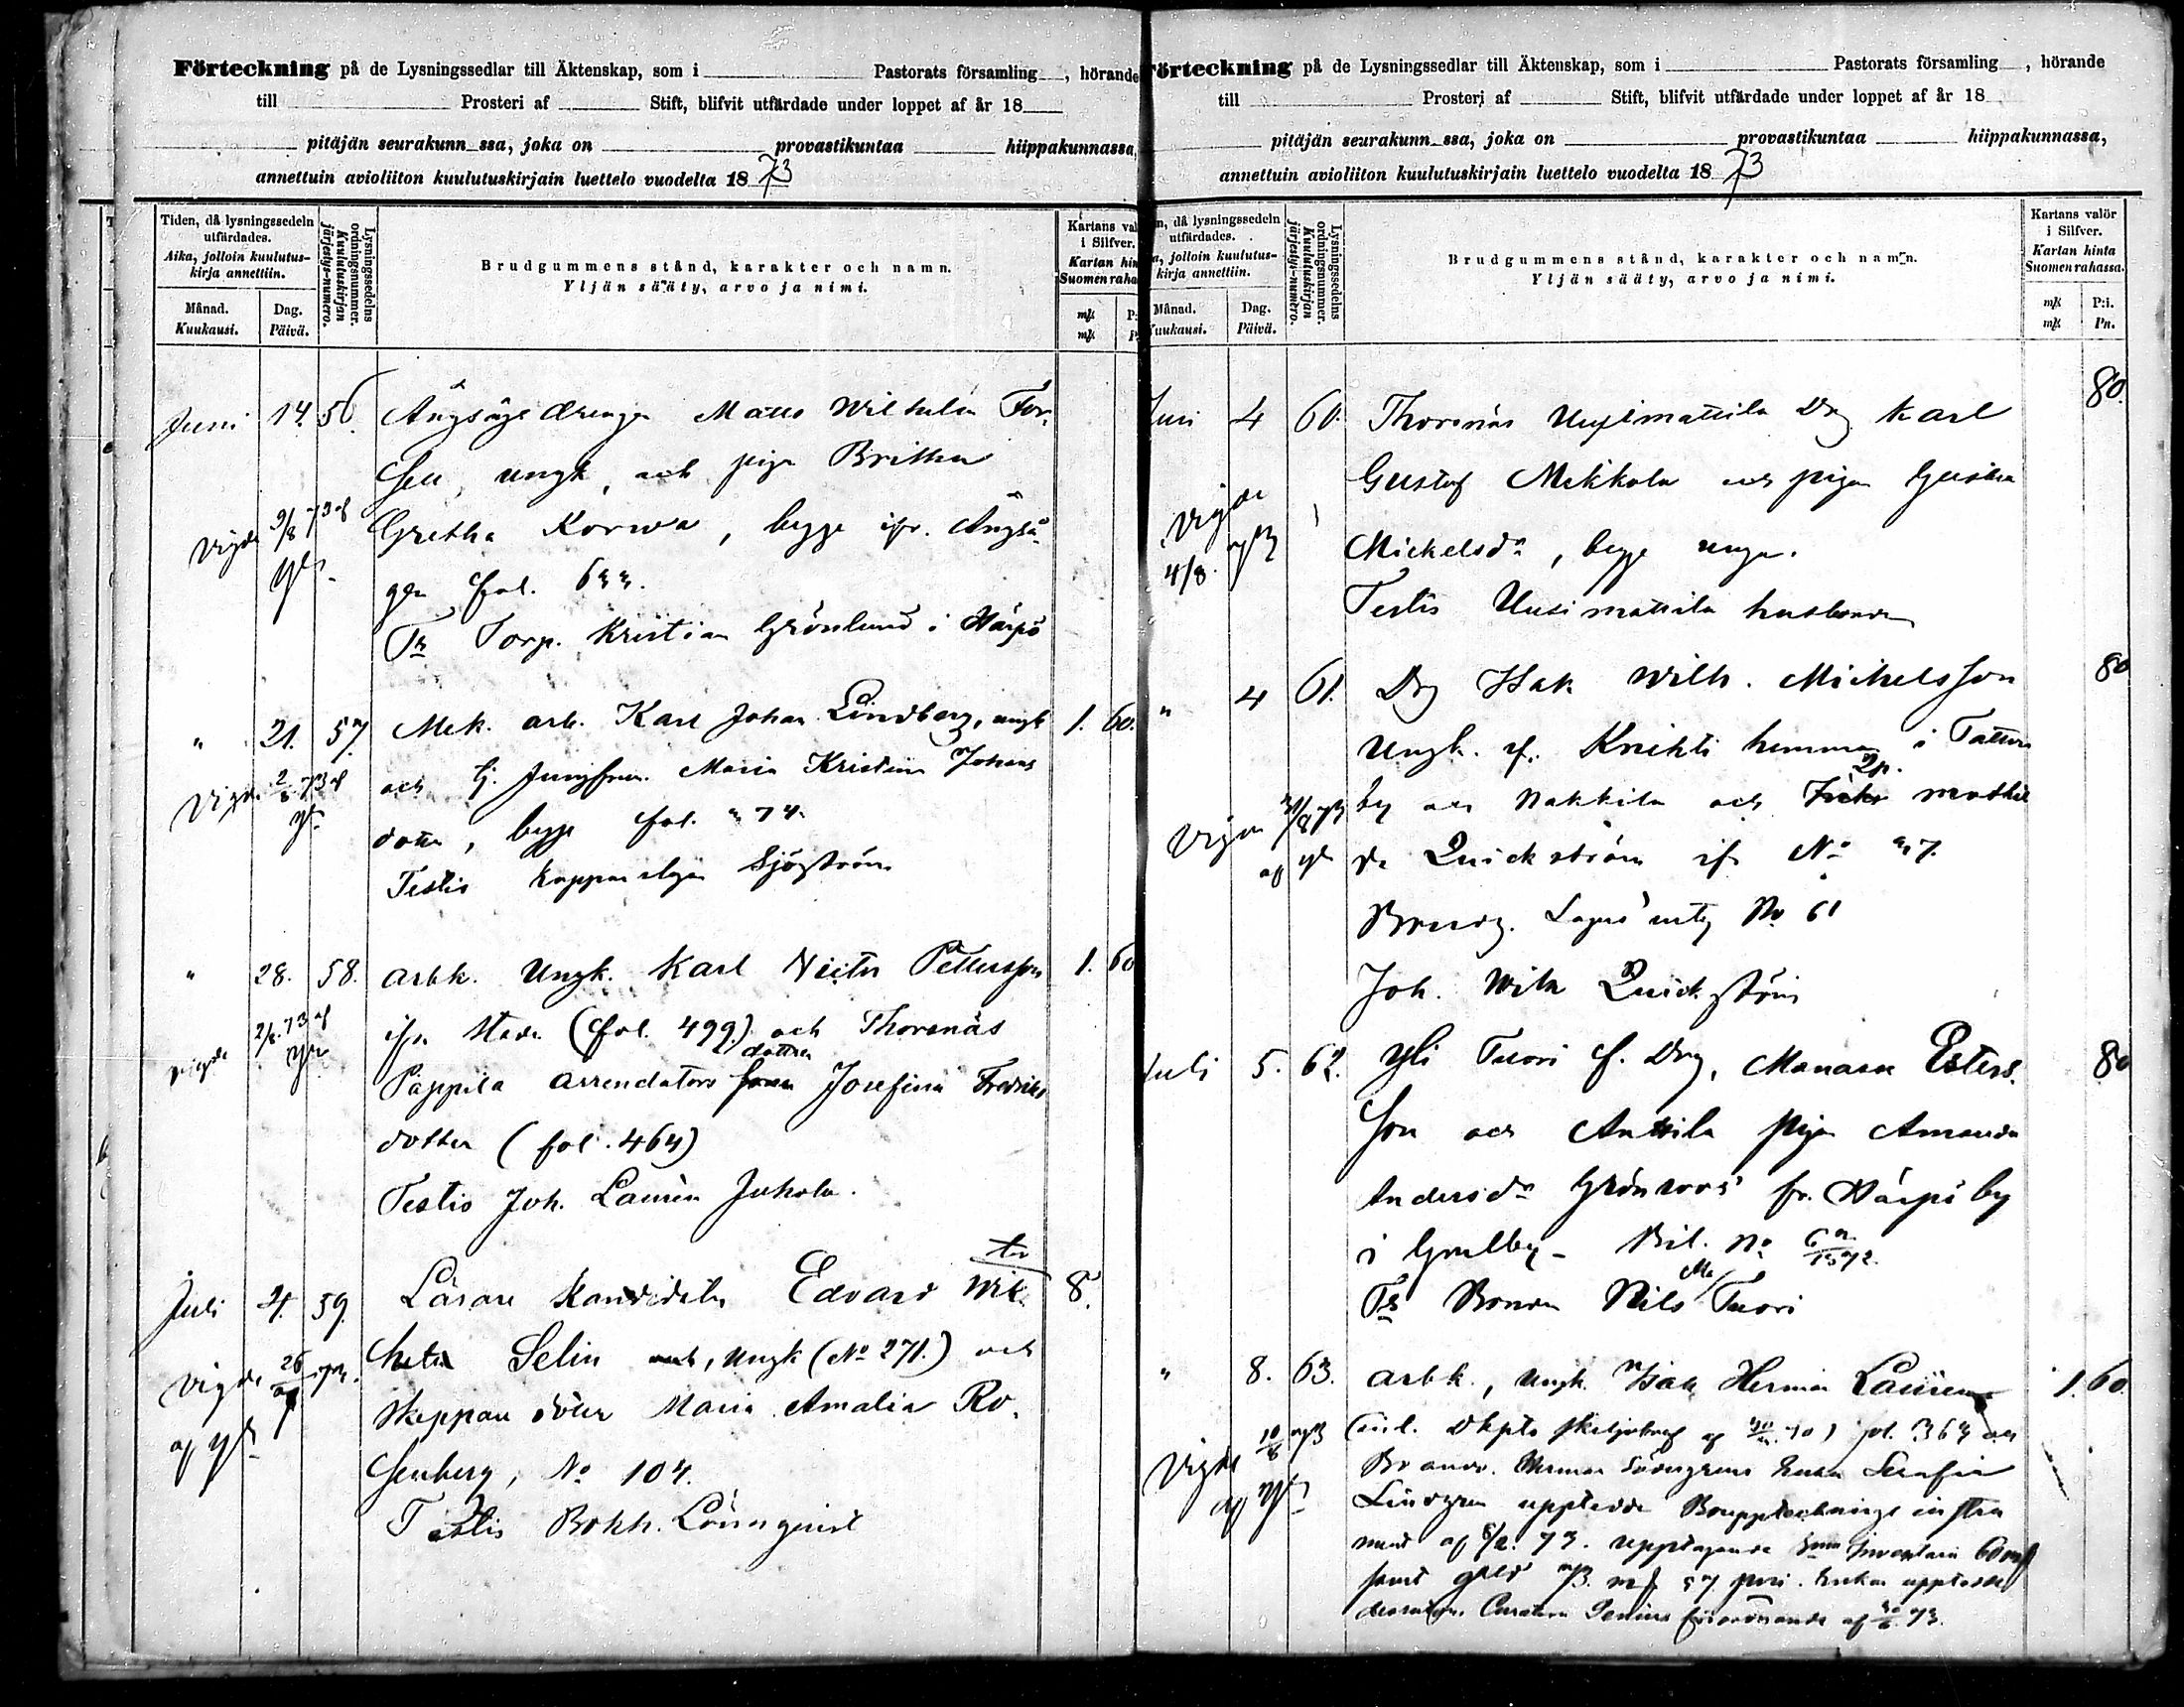 Förteckning på de Lysningssedlar till Äktenskap, som i Pastorats församling , hörande
till Prosteri af Stift, blifvit utfärdade under loppet af år 18
pitäjän seurakunn ssa, joka on provastikuntaa hiippakunnassa,
annettuin avioliiton kuulutuskirjain luettelo vuodelta 18 73
Tiden, då lysningssedeln utfärdades.
Aika, jolloin kuulutus-kirja annettiin.
Månad. Kuukausi.
Dag. Päivä.
Lysningssedelns ordningsnummer.
Kuulutuskirjan järjestys-numero.
Brudgummens stånd, karakter och namn.
Yljän sääty, arvo ja nimi.
Kartans val
i Silfver.
Kartan hin
Suomen raha
mk P:
mk P
Juni 14. 56 Ängsåga drengen Matts Wilhelm For
sell, ungk, och pigan Britha
Vigde 9/8 73 af Gretha Korwa, begge ifr. Ängså
gen fol. 633.
Tr Torp. Kristian Grönlund i Härpö
" 21. 57. Mek. arb. Karl Johan Lindberg, ungk 1. 60.
Vigde 2/8 73 af och Tj. Jungfrun Maria Kristina Johans
dotter, begge fol. 74.
Testis Sjöström
" 28. 58. arbk. Ungk. Karl Victor Pettersson 1. 60
vigde 2/8 73 af ifr Staden (fol. 499) och Thorsnäs
Pappila arrendators dottren Josefina Fredriks
dotter (fol. 464)
Testis Joh. Laurén Juhola.
Juli 4. 59. Lärare Kandidaten Edvard Wik 8.
tor
vigde 26 Selin, Ungk (No 271.) och
af Skeppare dotter Maria Amalia Ro.
senberg, No 104.
Testis Bokh. Lönnqvist
Förteckning på de Lysningssedlar till Äktenskap, som i Pastorats församling , hörande
till Prosteri af Stift, blifvit utfärdade under loppet af år 18
pitäjän seurakunn ssa, joka on provastikuntaa hiippakunnassa,
annettuin avioliiton kuulutuskirjain luettelo vuodelta 18 73
n, då lysningssedeln utfärdades.
a, jolloin kuulutus-kirja annettiin.
Månad. Kuukausi.
Dag. Päivä.
Lysningssedelns ordningsnummer.
Kuulutuskirjan järjestys-numero.
Brudgummens stånd, karakter och namn.
Yljän sääty, arvo ja nimi.
Kartans valör
i Silfver.
Kartan hinta
Suomen rahassa.
mk P:i.
mk Pn.
Juni 4 60. Thorsnäs Uusimattila Drg Karl 80.
Gustaf Mikkola och pigan Gustava
Vigde 4/8. Mickelsdr, begge unga.
Testis Uusimattila husbonden
" 4 61. Drg Isak Wilh. Michelsson 80
Ungk. f. Knihti hemman i Tattara
by av Nakkila och mathil
Vigde 31/8 73 af da Quickström ifr No 97.
Bondg. No 61
Joh. Wilh Quickström
Juli 5. 62. Yli Tuori f. Drg, Manasse Esters. 80
son och Anttila pigan Amanda
Andersdr Grönroos fr. Härpö by
i Gralby - Bil. No
Tr Bonden Nils Tuori
" 8. 63. arbk., Ungk. Isak Herman Laurén 1. 60.
Vigde 10/8 73 fol. 363 och
af Herman Södergrens enka Serafia
Lindgren uppledde Bouppteckningsinstru
ment af 5/2. 73. upptagande Inventarii 60 mk
samt gäld 73. mk 57 pni. Enkan uppledde
förordnande af 30/6. 73.